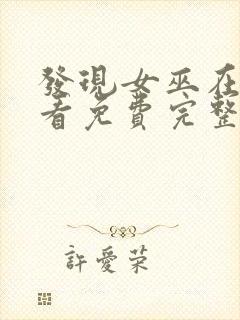 發現女巫在
看免費完整
許愛荣